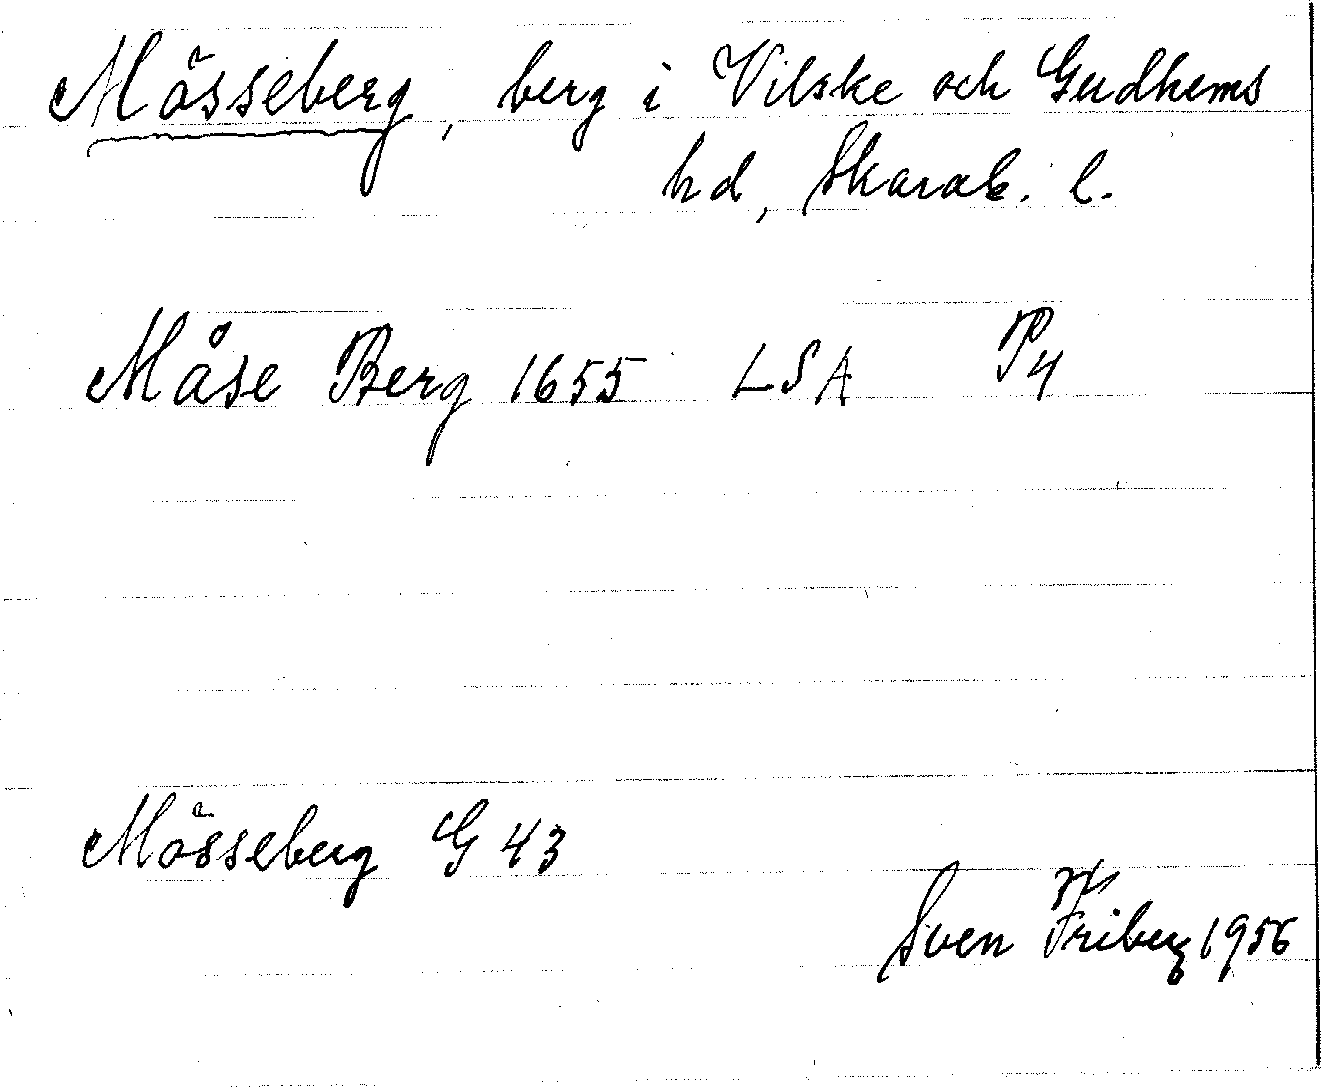 Mösseberg, berg i Vilske och Gudhems
hd, Skarab. l.
Måse Berg 1655 LSA P4
Mösseberg G 43
Sven Friberg 1956